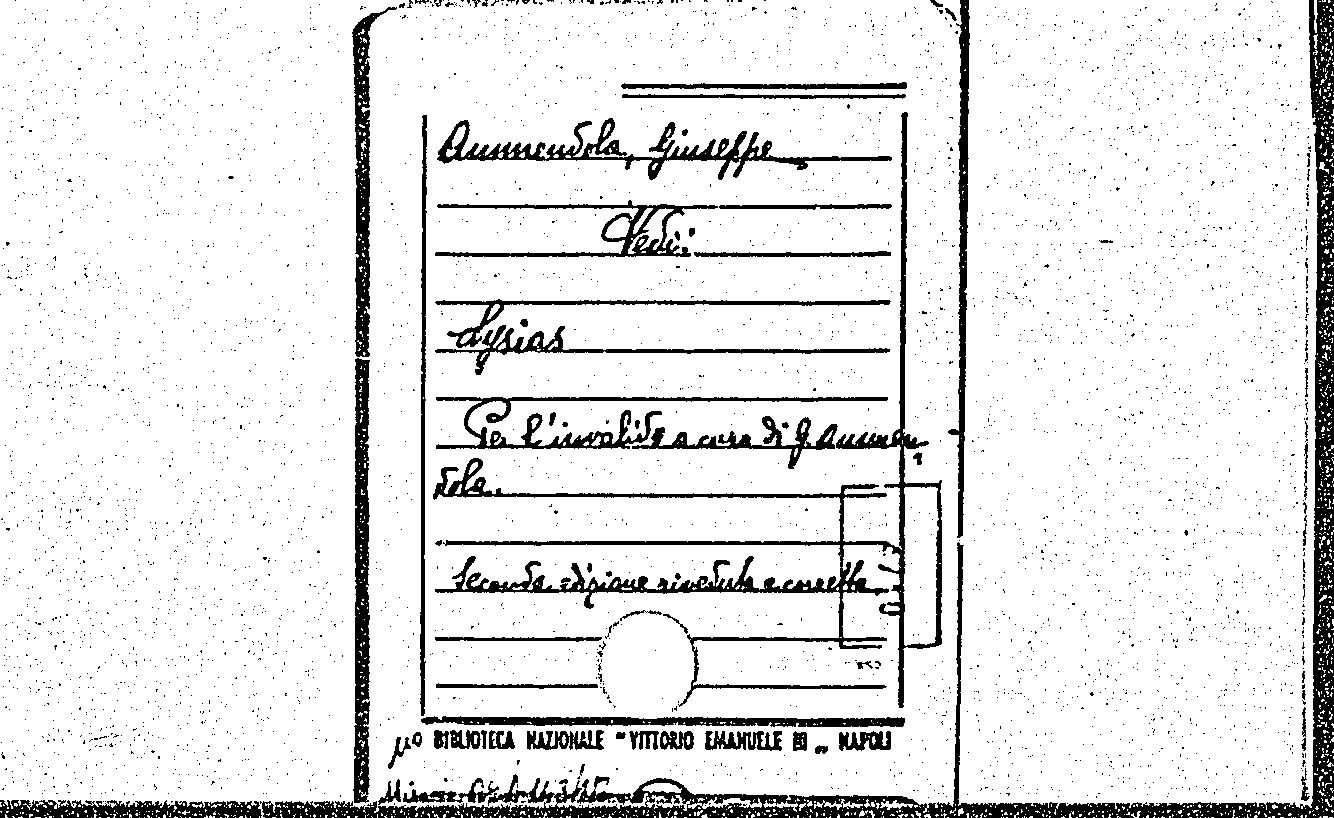 Ammendola, Giuseppe
Vedi:
Lysias
Per l'invalido a cura di G. Ammen-
dola.
Seconda edizione riveduta e corretta
BIBLIOTECA NAZIONALE "VITTORIO EMANUELE III„ NAPOLI